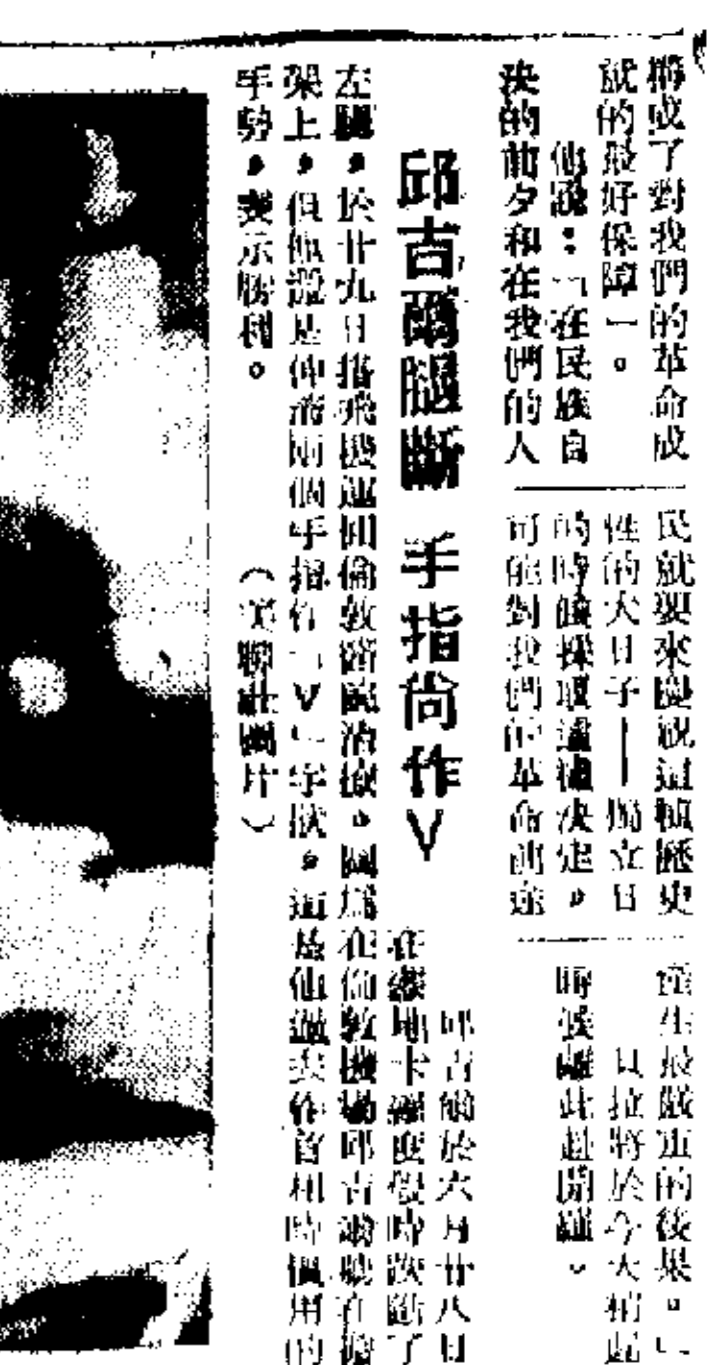 構成了對我們的革命成
就的最好保障」。
他說：「在民族自
決的前夕和在我們的人
民就要來慶祝這個歷史
性的大日子——獨立日
的時候採取這種決定，
可能對我們的革命前途
產生最嚴重的後果。」
貝拉將於今天稍
時後離此赴開羅。
邱吉爾腿斷 手指尚作V
邱吉爾於六月廿八日
在 地卡 度假時跌斷了
左腿，於廿九日搭飛機運回倫敦醫院治療。圖為在倫敦機場邱吉爾躺在擔
架上，但他還是伸着兩個手指作「V」字狀，這是他過去作首相時慣用的
手勢，表示勝利。
（美聯社圖片）